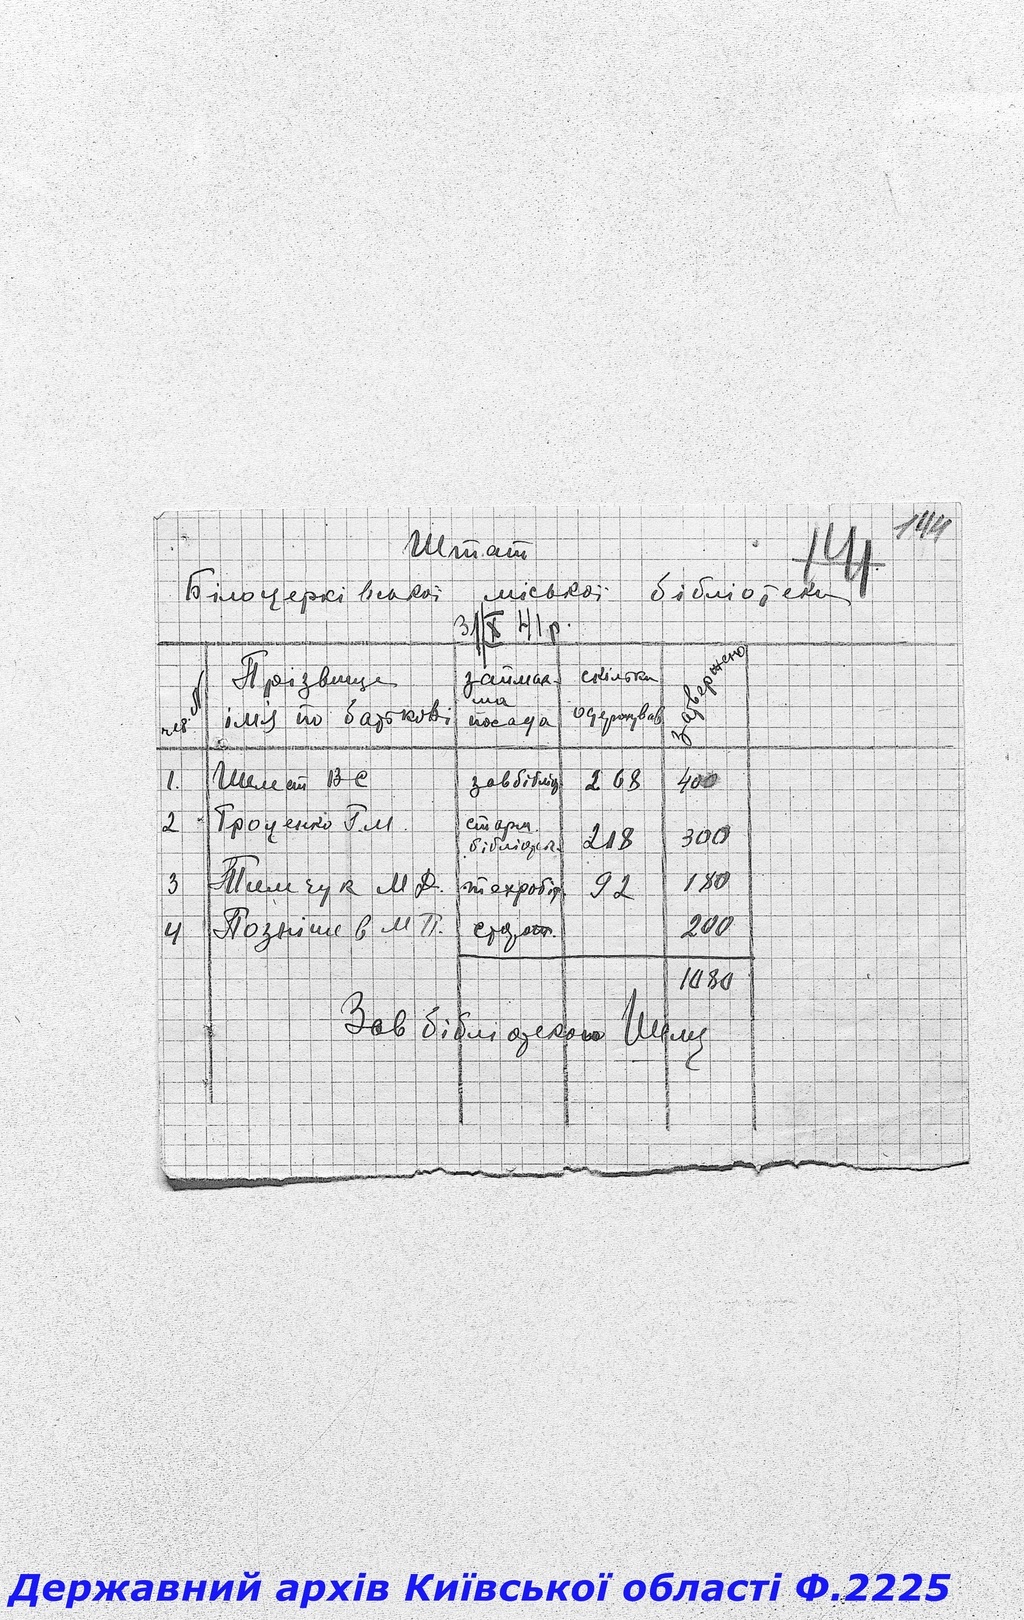 144
144
Штат
Білоцерківської міської бібліотеки
31/X 41 р.
черг. № Прізвище ім'я по батькові займає-ма посада скільки одержував затверджено
1. Шмат В Є завбібліот 268 400
2 Троценко Г. М. старш. бібліотек. 218 300
3 Тимчук М Ф. техробіт. 92 180
4 Позніше в М П. 200
1080
Зав бібліотекою
Державний архів Київської області Ф.2225